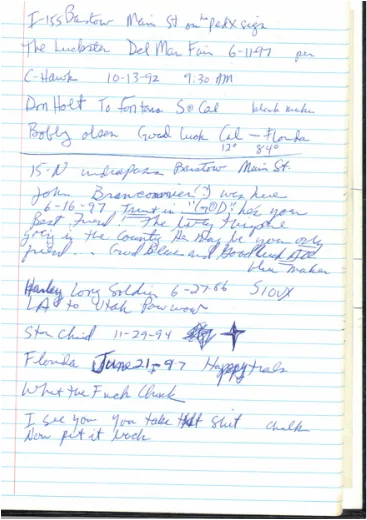 I-15S Barstow Main St on "pedx sign
The Luckster Del Mar Fair 6-11-97 pen
C-Hawk 10-13-92 9:30 AM
Don Holt To Fontana So Cal black marker
Bobby olsen Good Luck Cal - Florida
12° 84°
15-N underpass Barstow Main St.
John Branconnier (?) was here
6-16-97 Trust in "GOD" he's your
Best Friend! The
going is the Country He May be your only
friend... God Bless and Good Luck All
blue marker
Harley Long Soldier 6-27-66 SIOUX
LA to Utah Pow wow
Star Child 11-29-94
Florida June 21, 97 Happy trails
What the Fuck Chuck
I see you you take shit chalk
Now put it back